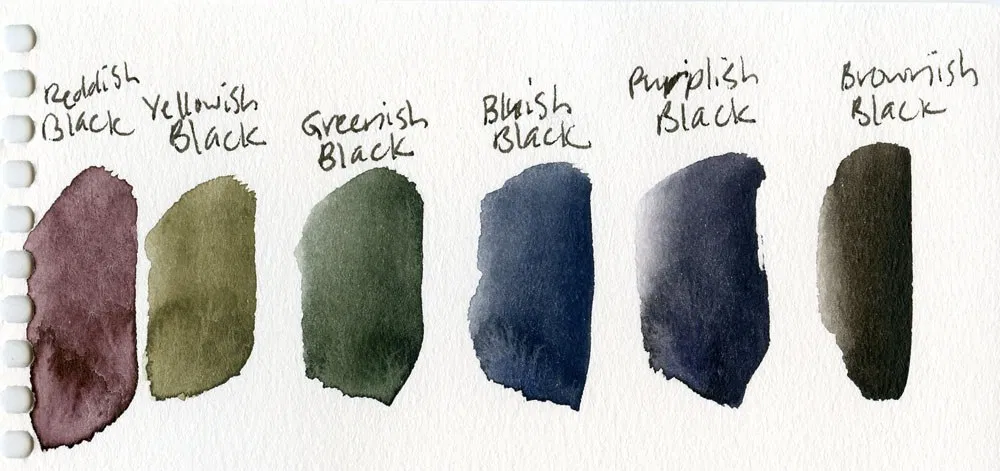 Reddish
Black
Yellowish
Black
Greenish
Black
Bluish
Black
Purplish
Black
Brownish
Black